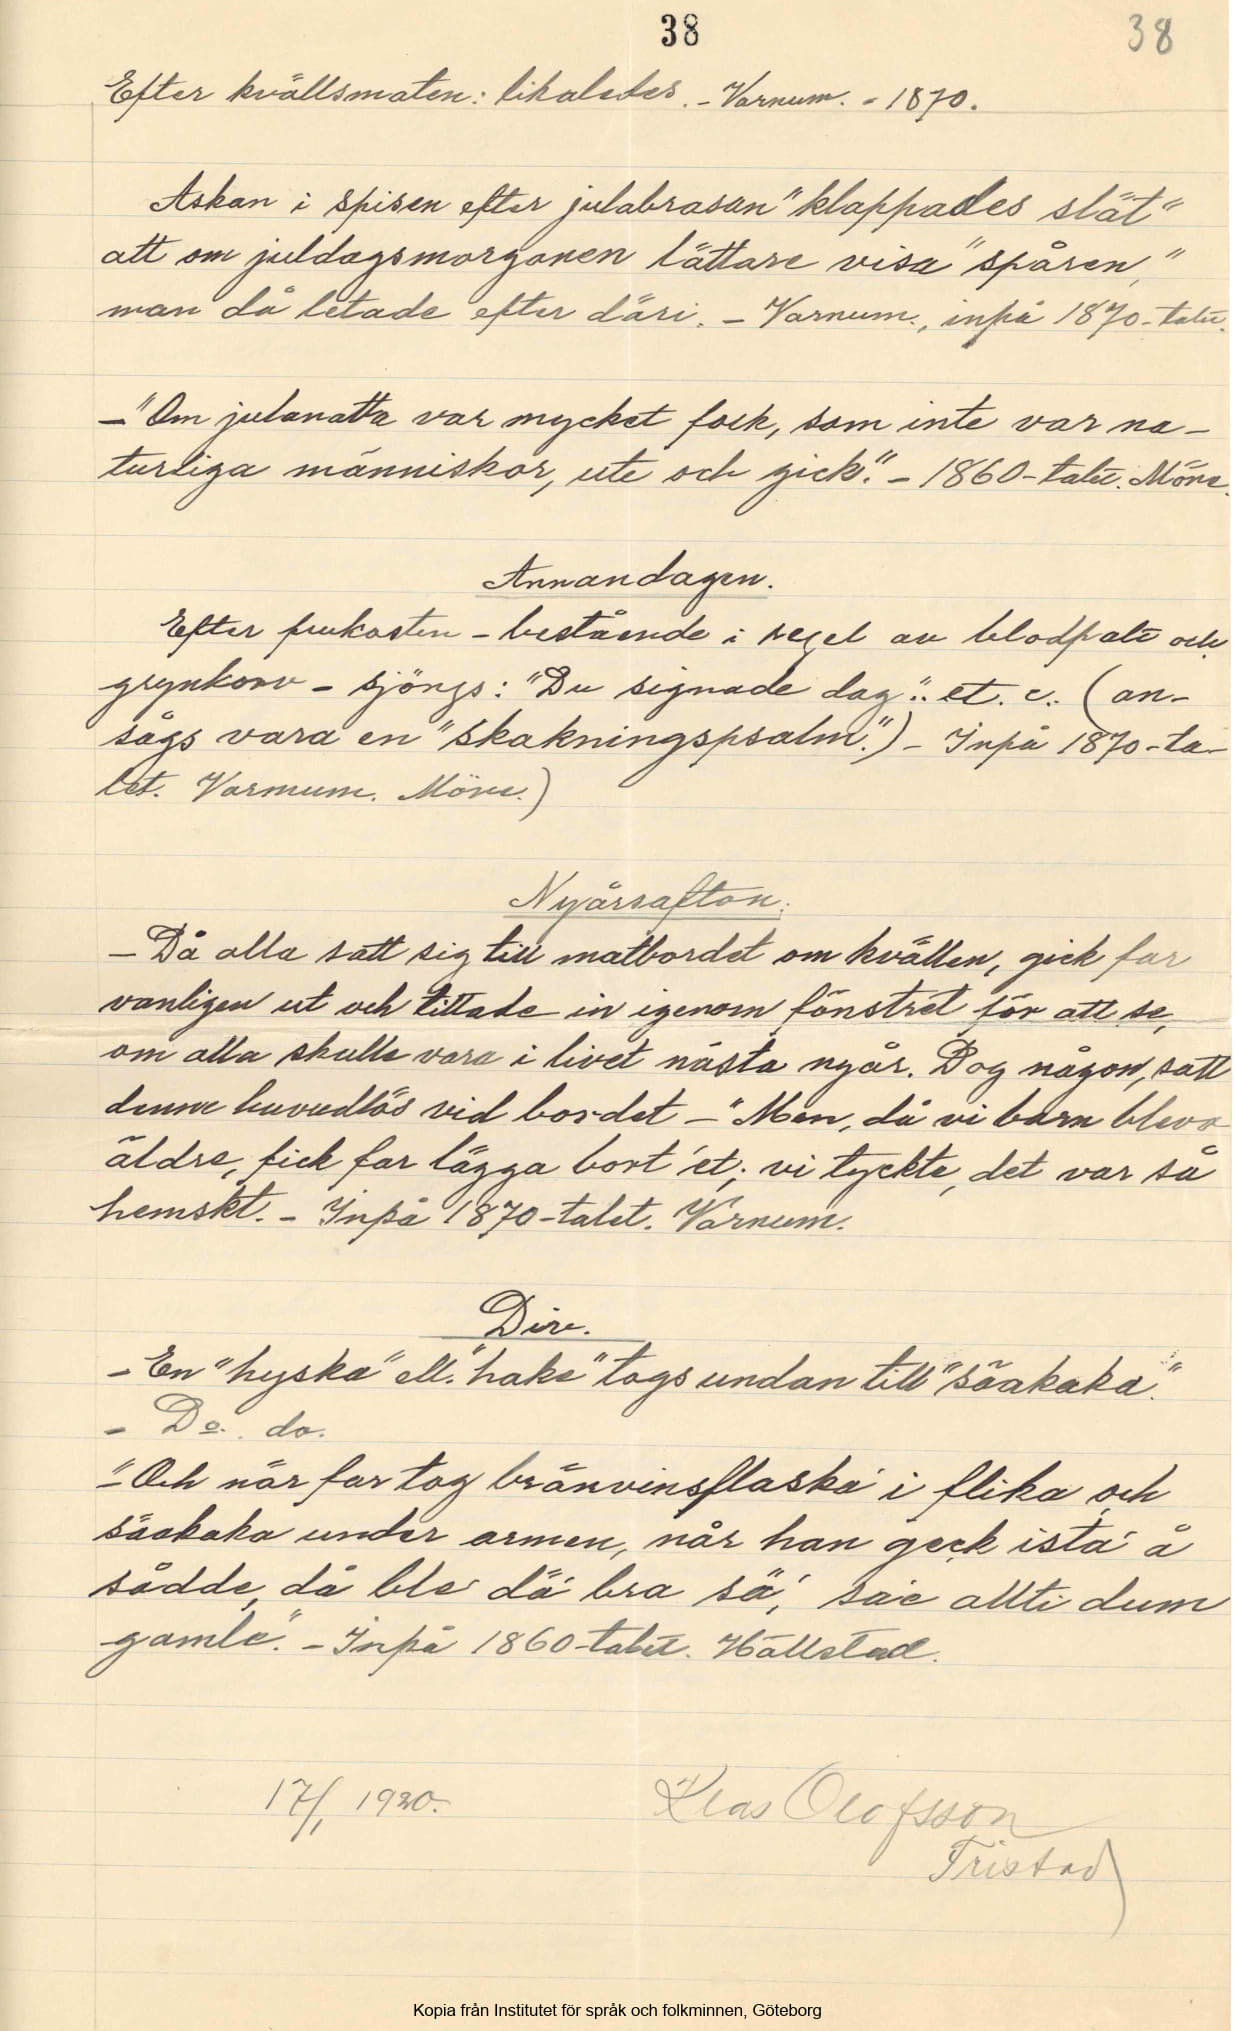 38 38
Efter kvällsmaten: likaledes. - Varnum. - 1870.
Askan i spisen efter julabrasan "klappades slät"
att om juldagsmorgonen lättare visa "spåren,"
man då letade efter däri. - Varnum., inpå 1870-talet.
- "Om julanatta var mycket folk, som inte var na-
turliga människor, ute och gick." - 1860-talet. Möne.
Annandagen.
Efter frukosten - bestående i regel av blodpalt och
grynkorv - sjöngs: "Du signade dag". et. c. (an-
sågs vara en "skakningspsalm".) - Inpå 1870-ta-
let. Varnum. Möne.)
Nyårsafton.
- Då alla satt sig till matbordet om kvällen, gick far
vanligen ut och tittade in igenom fönstret för att se,
om alla skulle vara i livet nästa nyår. Dog någon, satt
denne huvudlös vid bordet - "Men, då vi barn blevo
äldre, fick far lägga bort 'et; vi tyckte, det var så
hemskt. - Inpå 1870-talet. Varnum.
Div.
- En "hyska" ell. "hake" togs undan till "såakaka".
- Do. do.
- "Och när far tog bränvinsflaska' i flika och
såakaka under armen, når han geck ista' å
sådde, då ble' dä' bra sä', sa'e allti dum
gamle." - Inpå 1860-talet. Hällstad.
17/1 1920. Klas Olofsson
Tristad)
Kopia från Institutet för språk och folkminnen, Göteborg